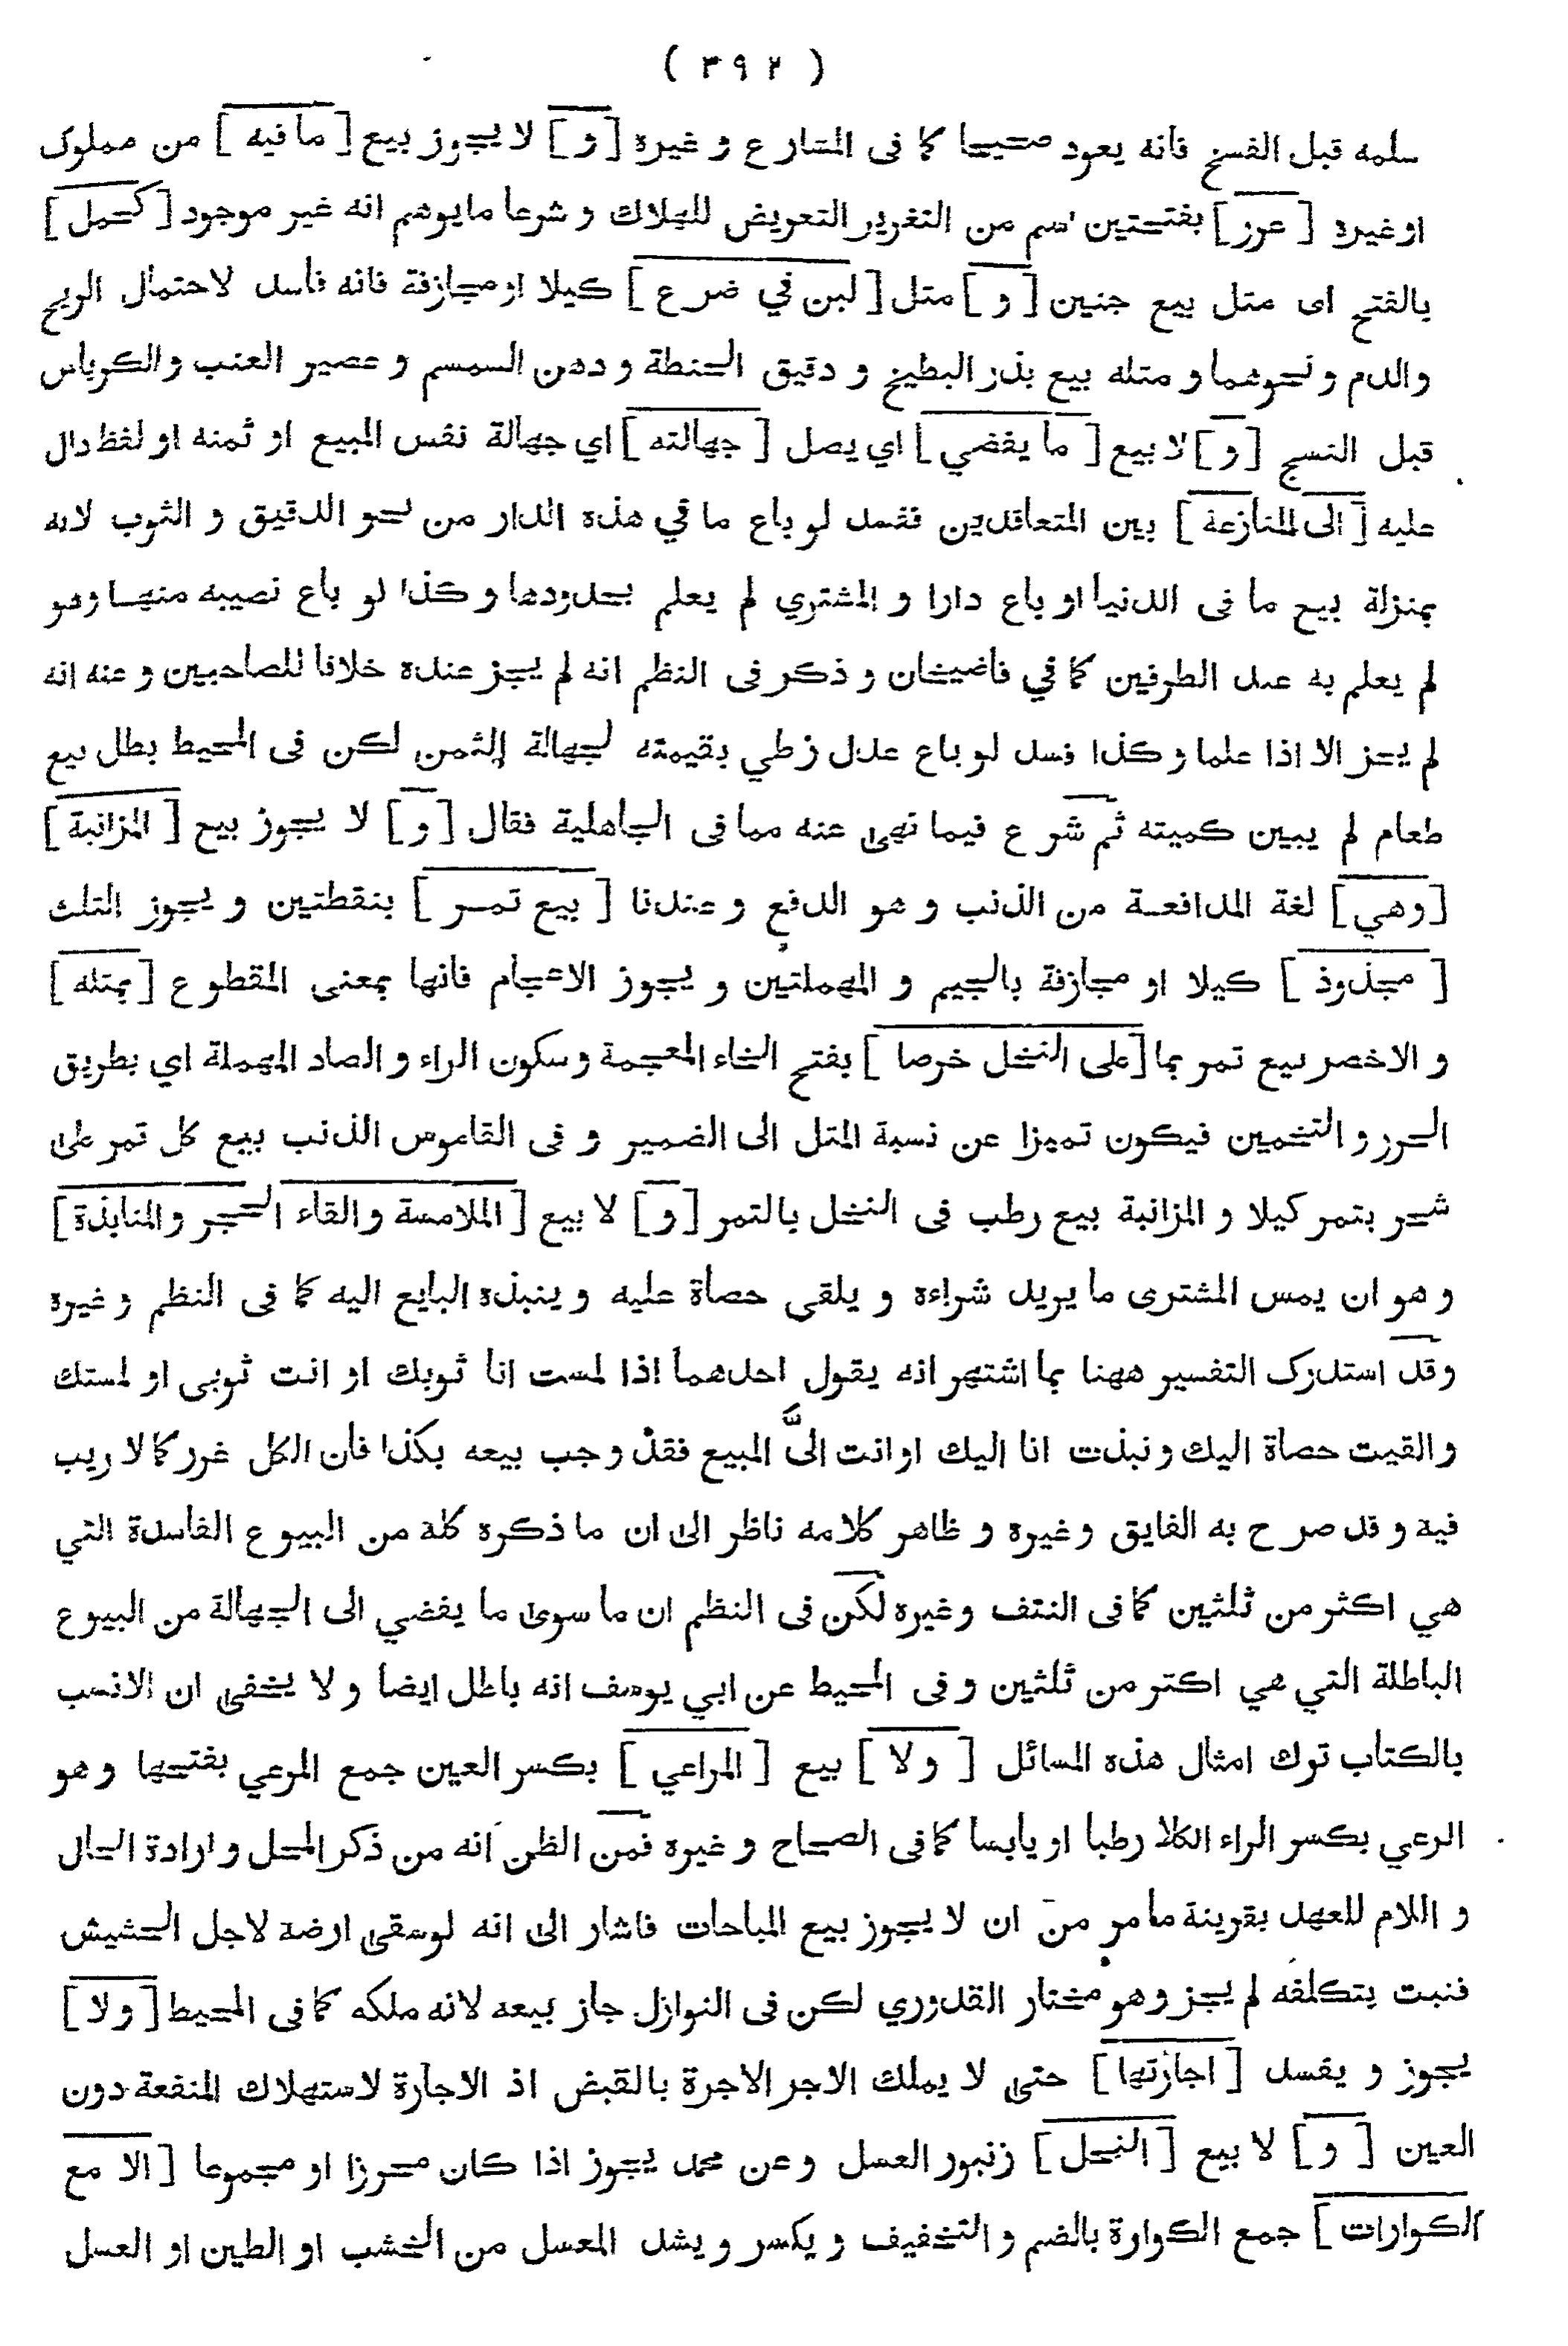 ( ٣٩٢ )
سلمه قبل الفسخ فانه يعود صحيحا كما فى المشارع و غيره [و] لا يجوز بيع [ما فيه] من مملوك
او غيره [غرر] بفتحتين اسم من التغرير التعريض للهلاك و شرعا ما يوهم انه غير موجود [كحمل]
بالفتح اى مثل بيع جنين [و] مثل [لبن في ضرع] كيلا او مجازفة فانه فاسد لاحتمال الريح
والدم و نحوهما و مثله بيع بذر البطيخ و دقيق الحنطة و دهن السمسم و عصير العنب والكرباس
قبل النسج [و] لا بيع [ما يفضي] اي يصل [جهالته] اي جهالة نفس المبيع او ثمنه او لفظ دال
عليه [الى المنازعة] بين المتعاقدين ففسد لو باع ما في هذه الدار من نحو الدقيق و الثوب لانه
بمنزلة بيع ما فى الدنيا او باع دارا و المشتري لم يعلم بحدودها و كذا لو باع نصيبه منها وهو
لم يعلم به عند الطرفين كما في قاضيخان و ذكر فى النظم انه لم يجز عنده خلافا للصاحبين و عنه انه
لم يجز الا اذا علما و كذا فسد لو باع عدل زطي بقيمته لجهالة الثمن لكن فى المحيط بطل بيع
طعام لم يبين كميته ثم شرع فيما نهى عنه مما فى الجاهلية فقال [و] لا يجوز بيع [المزابنة]
[وهي] لغة المدافعة من الزبن و هو الدفع و عندنا [بيع تمر] بنقطتين و يجوز الثلث
[مجذوذ] كيلا او مجازفة بالجيم و المهملتين و يجوز الاعجام فانها بمعنى المقطوع [بمثله]
و الاخصر بيع تمر بما [على النخل خرصا] بفتح الخاء المعجمة وسكون الراء و الصاد المهملة اي بطريق
الحرز و التخمين فيكون تميزا عن نسبة المثل الى الضمير و فى القاموس الزبن بيع كل ثمر على
شجر بتمر كيلا و المزابنة بيع رطب فى النخل بالتمر [و] لا بيع [الملامسة والقاء الحجر والمنابذة]
و هو ان يمس المشترى ما يريد شراءه و يلقى حصاة عليه و ينبذه البايع اليه كما فى النظم و غيره
وقد استدرك التفسير ههنا بما اشتهر انه يقول احدهما اذا لمست انا ثوبك او انت ثوبى او لمستك
والقيت حصاة اليك و نبذت انا اليك او انت الىَّ المبيع فقد وجب بيعه بكذا فان الكل غرر كما لا ريب
فيه و قد صرح به الفايق و غيره و ظاهر كلامه ناظر الى ان ما ذكره كله من البيوع الفاسدة التي
هي اكثر من ثلثين كما فى النتف وغيره لكن فى النظم ان ما سوى ما يفضي الى الجهالة من البيوع
الباطلة التي هي اكثر من ثلثين و فى المحيط عن ابي يوسف انه باطل ايضا و لا يخفى ان الانسب
بالكتاب ترك امثال هذه المسائل [ولا] بيع [المراعي] بكسر العين جمع المرعي بفتحها و هو
الرعي بكسر الراء الكلا رطبا او يابسا كما فى الصحاح و غيره فمن الظن انه من ذكر المحل و ارادة الحال
و اللام للعهد بقرينة ما مر من ان لا يجوز بيع المباحات فاشار الى انه لو سقى ارضه لاجل الحشيش
فنبت بتكلفه لم يجز و هو مختار القدوري لكن فى النوازل جاز بيعه لانه ملكه كما فى المحيط [ولا]
يجوز و يفسد [اجازتها] حتى لا يملك الاجر الاجرة بالقبض اذ الاجارة لاستهلاك المنفعة دون
العين [و] لا بيع [النحل] زنبور العسل و عن محمد يجوز اذا كان محرزا او مجموعا [الا مع
الكوارات] جمع الكوارة بالضم و التخفيف و يكسر و يشد المعسل من الخشب او الطين او العسل